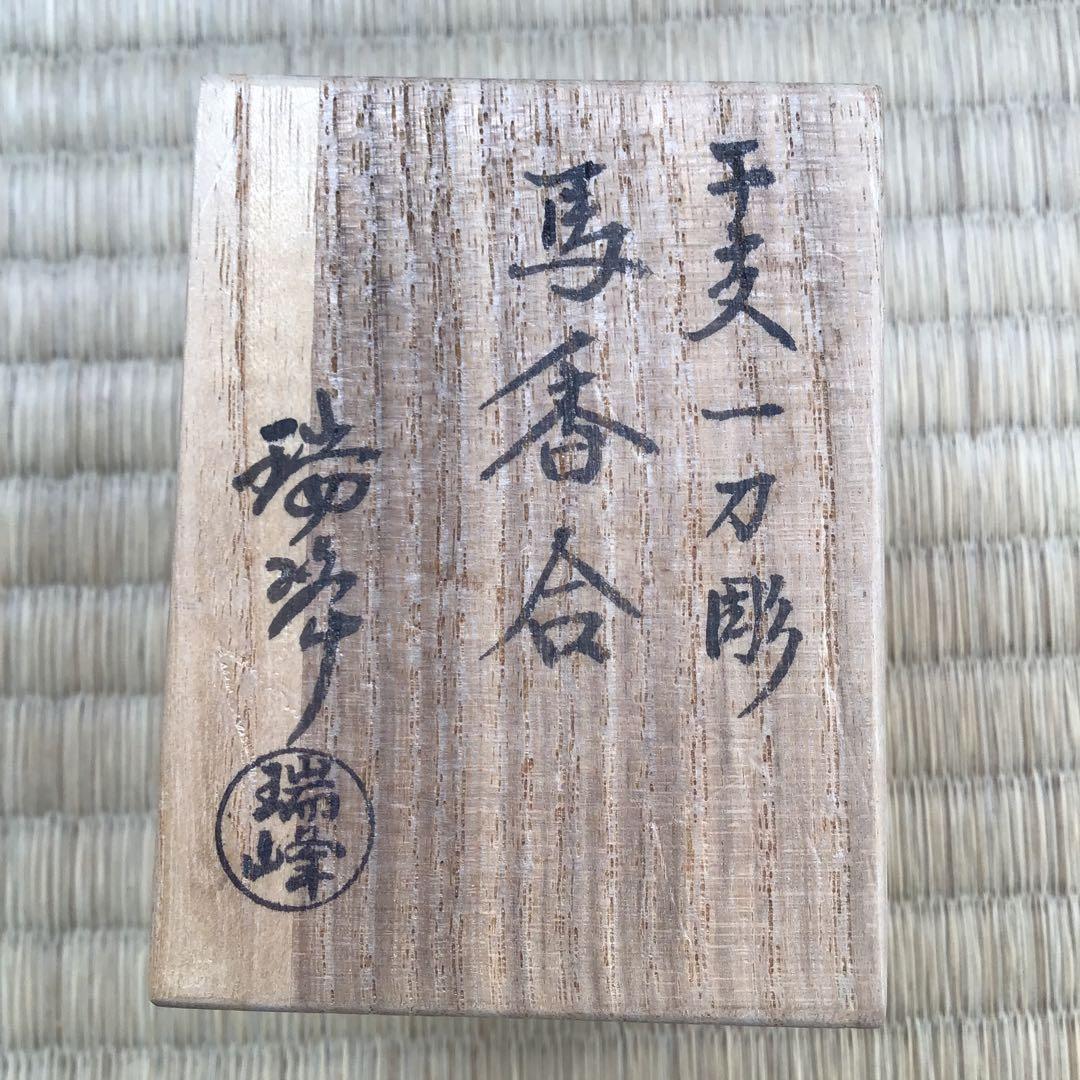 干支一刀彫
馬香合
瑞峰
瑞峰